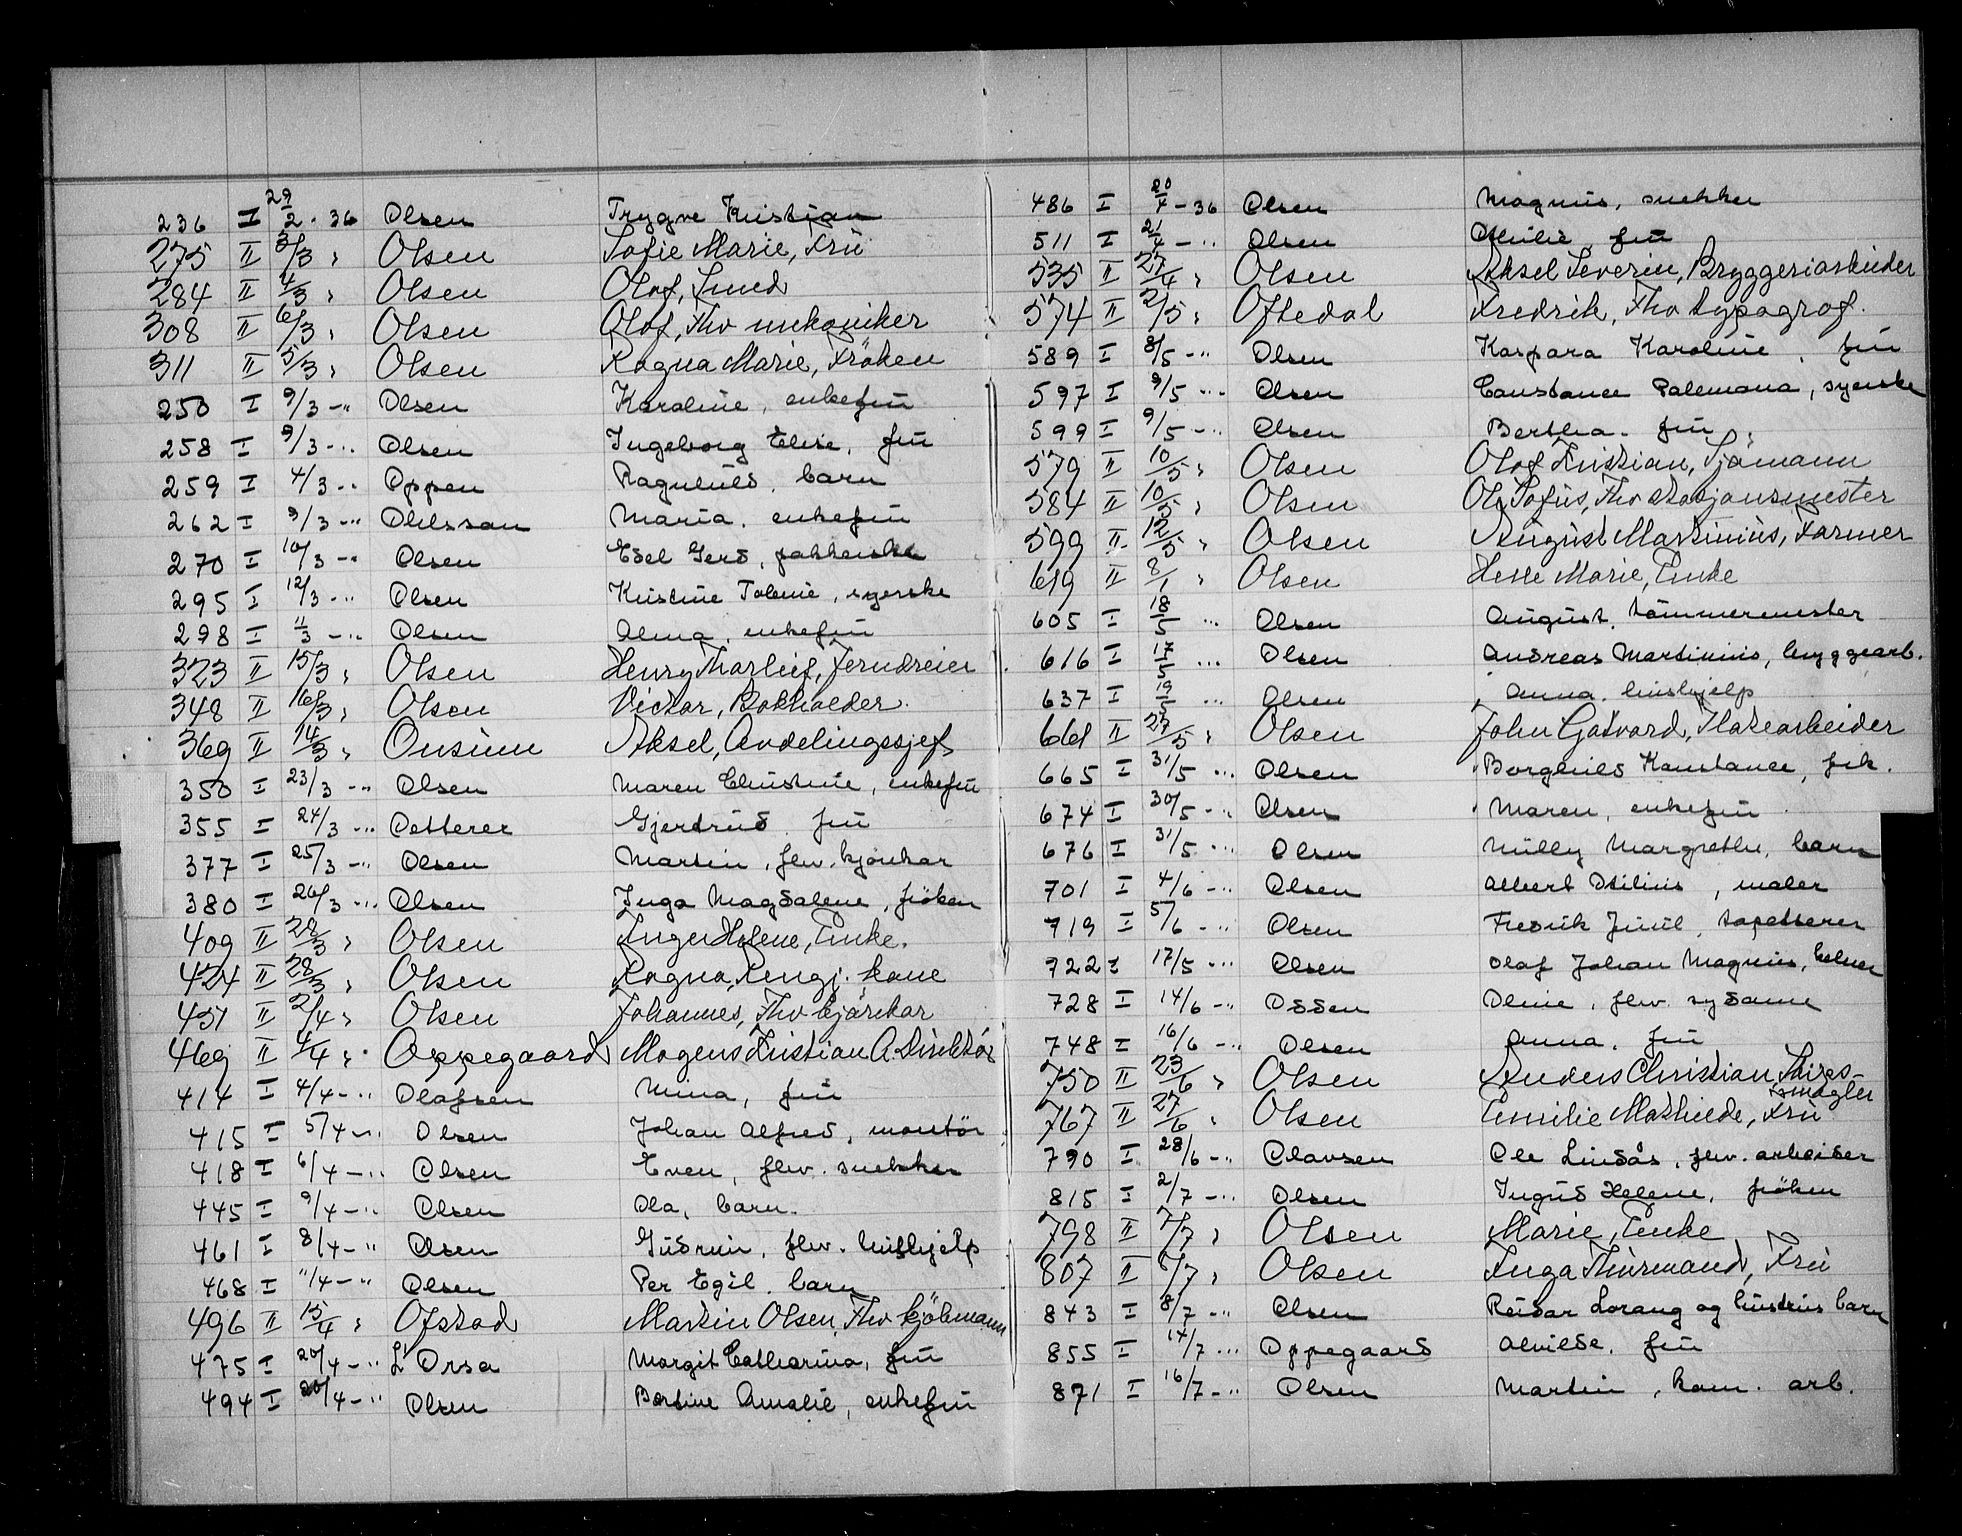 236 I 29/2 - 36 Olsen Trygve Kristian
275 II 3/3 " Olsen Sofie Marie, Frü
284 II 4/3 " Olsen Olof, Smed
308 II 6/3 " Olsen Olof, Fhv mekaniker
311 II 5/3 " Olsen Ragna Marie, Fröken
250 I 9/3 - " Olsen Karoline, enkefrü
258 I 9/3 - " Olsen Ingeborg Elise, frü
259 I 4/3 - " Oppen Ragnhild, barn
262 I 9/3 - " Ohlsson Maria, enkefrü
270 I 10/3 - " Olsen Edel Gerd, pakkerske
295 I 12/3 - " Olsen Kristine Toline, syerske
298 I 11/3 - " Olsen Alma, enkefrü
323 II 15/3 " Olsen Henry Thorleif, Jerndreier
348 II 16/3 " Olsen Victor, Bokholder
369 II 14/3 " Onsüm Aksel, Avdelingssjef
350 I 23/3 - " Olsen Maren Christine, enkefrü
355 I 24/3 - " Oetterer Gjertrüd frü
377 I 25/3 - " Olsen Martin, fhv. kjörekar
380 I 26/3 - " Olsen Inga Magdalene, fröken
409 II 28/3 " Olsen Inger Helene, Enke.
424 II 28/3 " Olsen Ragna, Rengj. kone
451 II 2/4 " Olsen Johannes, Fhv kjörekar
469 II 4/4 " Oppegaard Mogens Kristian A. Direktör
414 I 4/4 - " Olafsen Mina, frü
415 I 5/4 - " Olsen Johan Alfred, montör
418 I 6/4 - " Olsen Even, fhv. snekker
445 I 9/4 - " Olsen Ola, barn.
461 I 8/4 - " Olsen Güdrün, fhv. hüshjelp
468 I 11/4 - " Olsen Per Egil, barn
496 II 15/4 " Ofstad Martin Olsen, Fhv kjöbmann
475 I 20/4 - " L'Orsa Margit Catharina, frü
494 I 20/4 - " Olsen Bertine Amalie, enkefrü
486 I 20/4 - 36 Olsen Magnüs, snekker
511 I 21/4 - " Olsen Othilie frü
535 II 27/4 " Olsen Aksel Severin, Bryggeriarbeider
574 II 2/5 " Oftedal Fredrik, Fhv typograf.
589 I 8/5 - " Olsen Kaspara Karoline, frü
597 I 9/5 - " Olsen Constance Palemona, syerske
599 I 9/5 - " Olsen Bertha. frü
579 II 10/5 " Olsen Olof Kristian, Sjömann
584 II 10/5 " Olsen Ole Sofüs, Fhv stasjonsmester
599 II 12/5 " Olsen Aügüst Martiniüs, Farmer
619 II 8/1 " Olsen Helle Marie, Enke
605 I 18/5 " Olsen Aügüst, tömmermester
616 I 17/5 " Olsen Andreas Martiniüs, bryggearb.
637 I 19/5 " Olsen Anna, hüshjelp
661 II 27/5 " Olsen John Gotvard, Platearbeider
665 I 31/5 " Olsen Borghild Konstance, frk.
674 I 30/5 - " Olsen Maren, enkefrü
676 I 31/5 " Olsen Milly Margrethe, barn
701 I 4/6 - " Olsen Albert Otiliüs, maler
719 I 5/6 - " Olsen Fredrik Jüül, tapetserer
722 I 17/5 " Olsen Olaf Johan Magnüs, kelner
728 I 14/6 - " Odden Oline, fhv. sydame
748 I 16/6 - " Olsen Anna, frü
750 II 23/6 " Olsen Anders Christian, Skips-
mægler
767 II 27/6 " Olsen Emilie Mathilde, Frü
790 I 28/6 - " Olavsen Ole Lindås, fhv. arbeider
815 I 2/7 - " Olsen Ingrid Helene, fröken
798 II 7/7 " Olsen Marie, Enke
807 II 6/7 " Olsen Inga Thürmand, Frü
843 I 8/7 - " Olsen Reidar Lorang og hüstrüs barn
855 I 14/7 " Oppegaard Alvilde, frü
871 I 16/7 - " Olsen Martin, kom. arb.